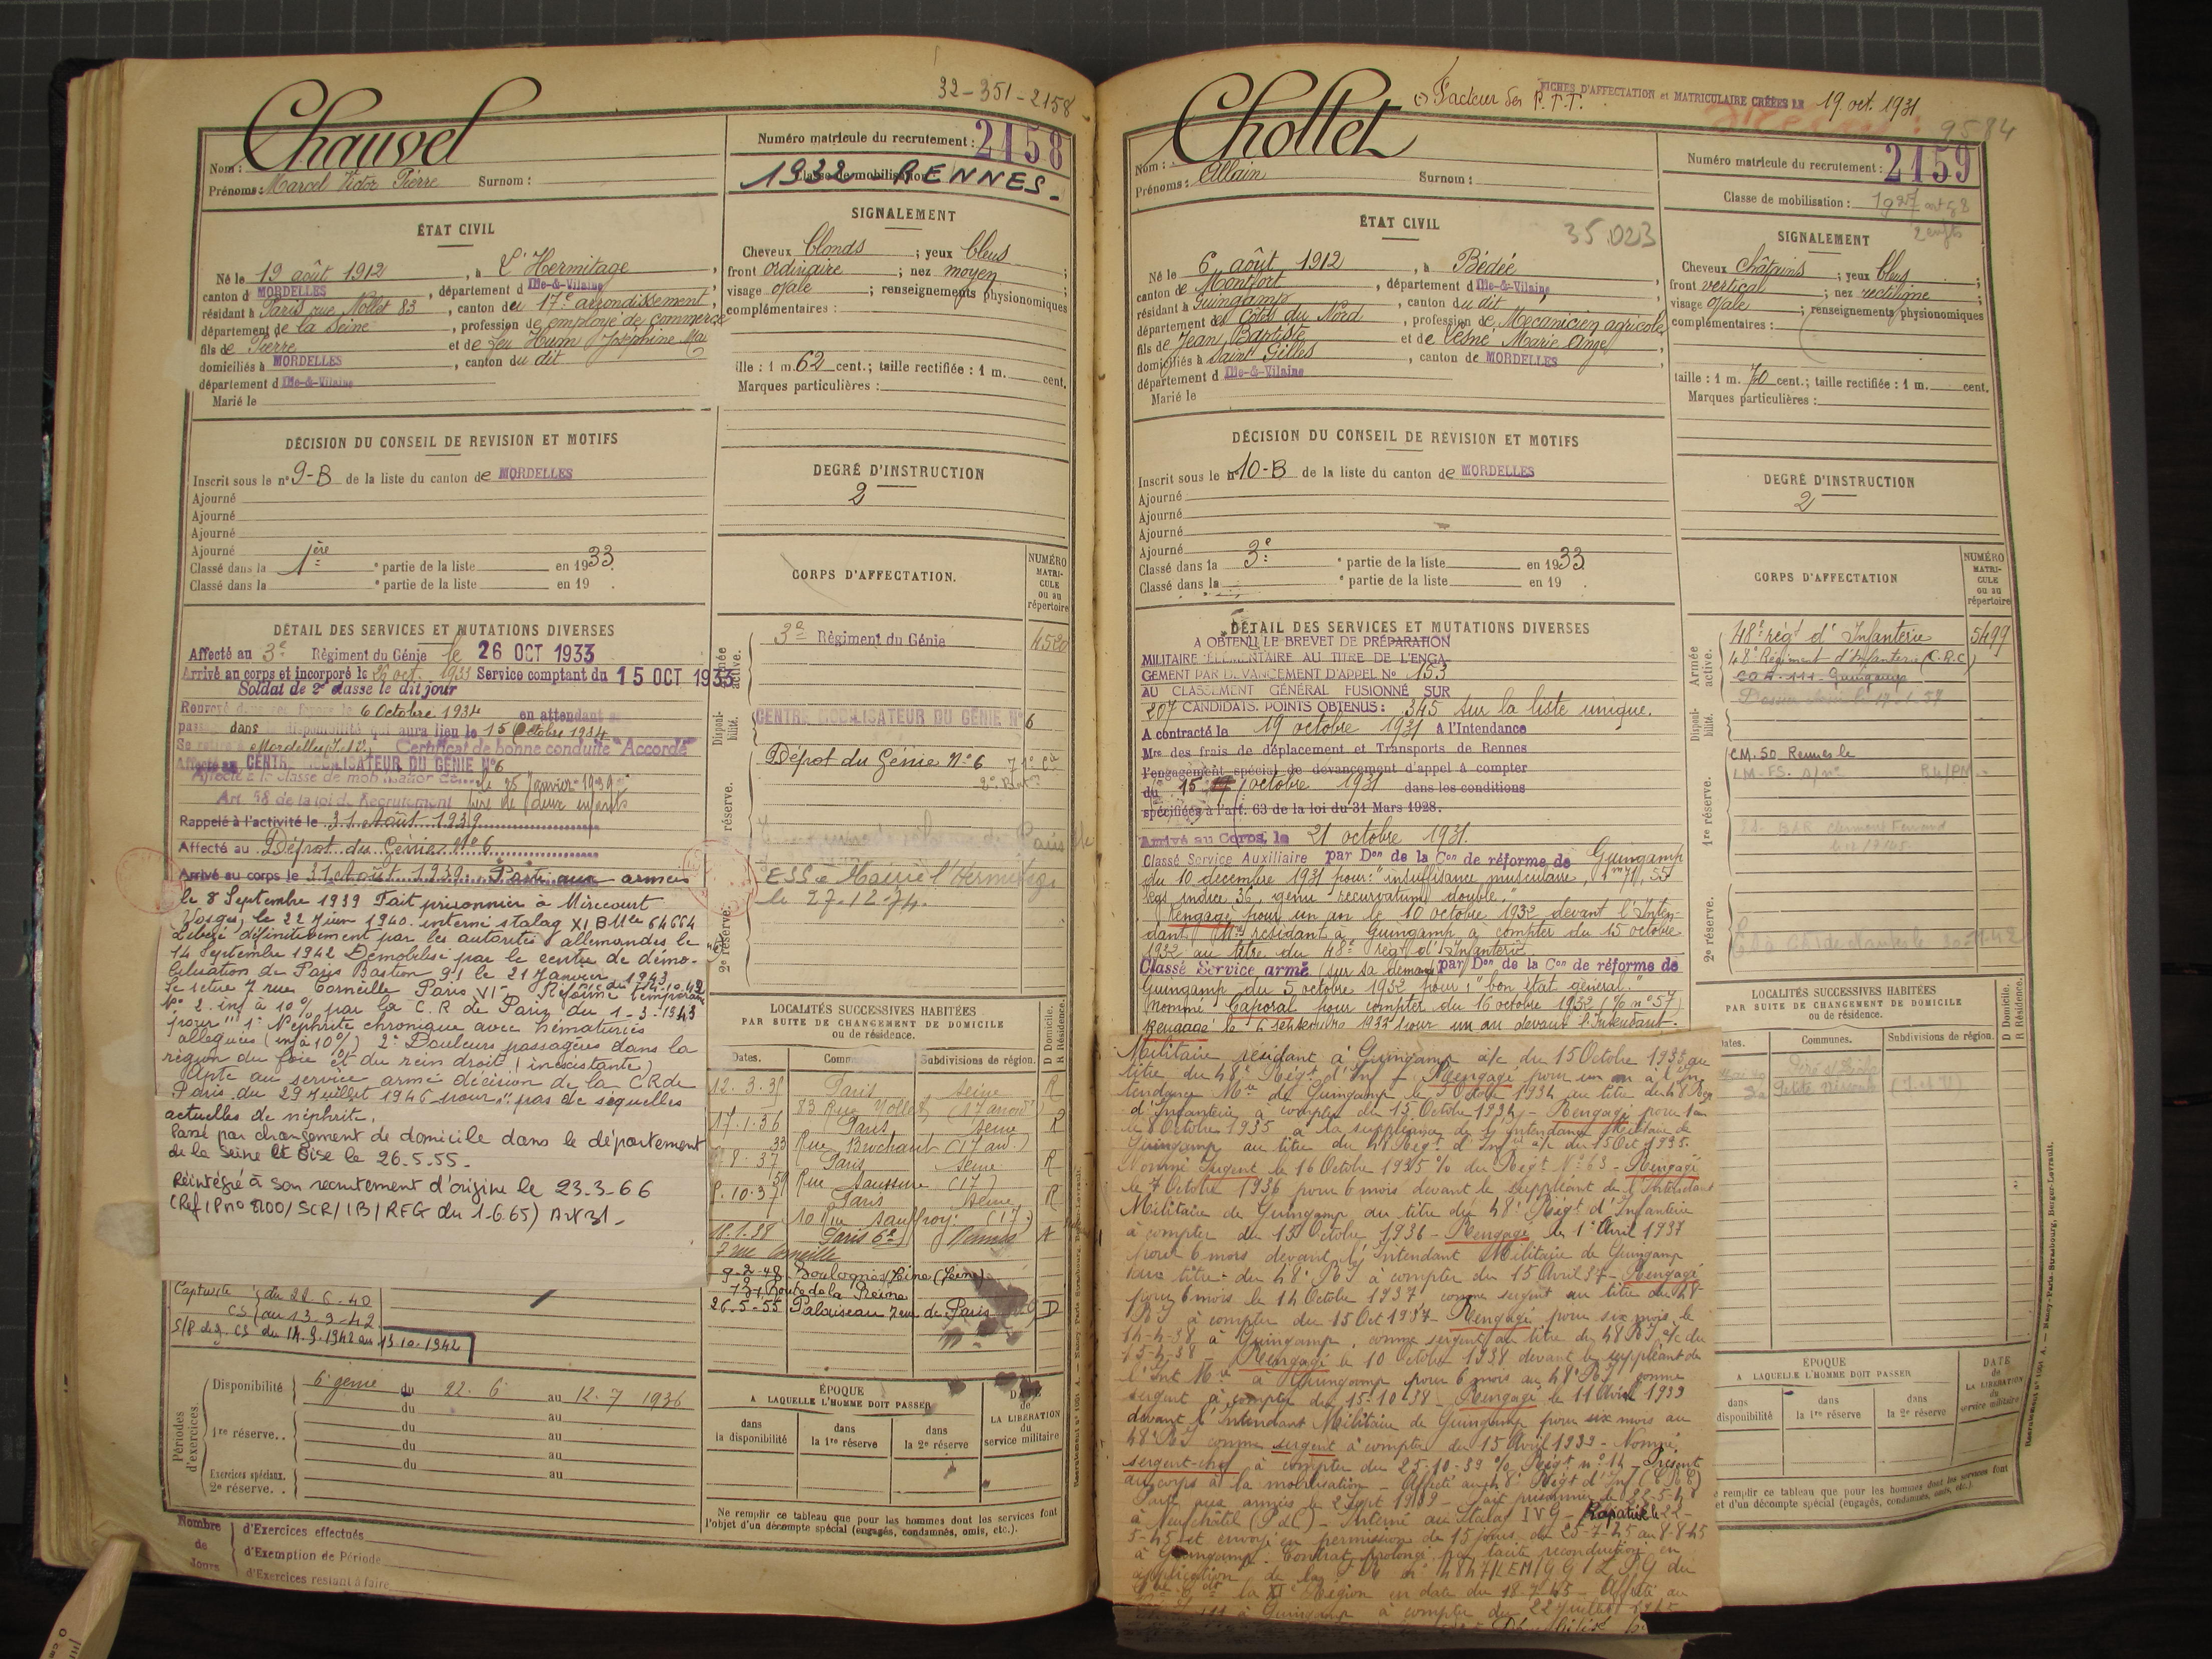 32-351-2158
Chauvel
Nom :
Prénoms : Marcel Victor Pierre Surnom :
Numéro matricule du recrutement : 2158
Classe de mobilisation
1932 RENNES
ÉTAT CIVIL
Né le 19 août 1912, à L'Hermitage,
canton d MORDELLES, département d Ille-&-Vilaine,
résidant à Paris rue Nollet 83, canton du 17e arrondissement,
département de la Seine, profession de employé de commerce
fils de Pierre et de feu Hum Joséphine Mar
domiciliés à MORDELLES, canton du dit
département d Ille-&-Vilaine
Marié le
SIGNALEMENT
Cheveux blonds ; yeux bleus ;
front ordinaire ; nez moyen ;
visage ovale ; renseignements physionomiques
complémentaires :
ille : 1 m. 62 cent.; taille rectifiée : 1 m. cent.
Marques particulières :
DÉCISION DU CONSEIL DE REVISION ET MOTIFS
Inscrit sous le n° 9-B de la liste du canton de MORDELLES
Ajourné
Ajourné
Ajourné
Ajourné
Classé dans la 1ère partie de la liste en 1933
Classé dans la e partie de la liste en 19 .
DEGRÉ D'INSTRUCTION
2
DÉTAIL DES SERVICES ET MUTATIONS DIVERSES
Affecté au 3e Régiment du Génie le 26 OCT 1933
Arrivé au corps et incorporé le 26 oct. 1933 Service comptant du 15 OCT 1933
Soldat de 2e classe le dit jour
Renvoyé dans ses foyers le 6 Octobre 1934 en attendant
passage dans disponibilité qui aura lieu le 15 Octobre 1934
Se retire à Mordelles (I.&V.) Certificat de bonne conduite "Accordé"
Affecté au CENTRE MOBILISATEUR DU GÉNIE N°6
Affecté à la classe de mobilisation de le 25 Janvier 1939
Art. 58 de la loi de Recrutement père de deux enfants
Rappelé à l'activité le 31 Août 1939
Affecté au Dépôt du Génie N° 6
Arrivé au corps le 31 Août 1939. Parti aux armées
le 8 Septembre 1939 Fait prisonnier à Mirecourt
Vosges, le 22 Juin 1940. interné stalag XI B Mle 64664
Libéré définitivement par les autorités allemandes le
14 Septembre 1942 Démobilisé par le centre de démo-
bilisation de Paris Bastion 91 le 21 Janvier 1943
Se retire 7 rue Corneille Paris VIe Réformé temporaire
N° 2. inf à 10% par la C.R de Paris du 1-3-1943
pour "1° Néphrite chronique avec hématuries
alléguées (inf à 10%) 2° Douleurs passagères dans la
région du foie et du rein droit (inexistante)
Apte au service armé décision de la CR de
Paris du 29 Juillet 1946 pour "pas de séquelles
actuelles de néphrite.
Passé par changement de domicile dans le département
de la Seine et Oise le 26.5.55.
Réintégré à son recrutement d'origine le 23.3.66
(Réf IP n° 8200/SCR/1B/REG du 1.6.65) Art 31
Captivité du 22.6.40
CS au 13.9.42
S/P de g. CS du 14.9.1942 au 13.10.1942
CORPS D'AFFECTATION.
NUMÉRO MATRI-CULE ou au répertoire
Armée active.
3e Régiment du Génie 4520
Disponi-bilité.
CENTRE MOBILISATEUR DU GENIE N°6
1re réserve.
Dépôt du Génie N° 6
ESS. Mairie l'Hermitage
le 27.12.74.
2e réserve.
LOCALITÉS SUCCESSIVES HABITÉES
PAR SUITE DE CHANGEMENT DE DOMICILE
ou de résidence.
D Domicile. R Résidence.
Dates. Communes. Subdivisions de région.
12.3.35 Paris Seine R
83 Rue Nollet (17 arrond)
17.1.36 Paris Seine R
33 Rue Brochant (17 arr.)
8.37 Paris Seine R
159 Rue Saussure (17)
8.10.37 Paris Seine R
10 Rue Sauffroy (17)
18.1.38 Paris 6e
7 rue Corneille
9-2-48 Boulogne s/Seine (Seine)
Route de la Reine
26-5-55 Palaiseau rue de Paris D
Périodes d'exercices.
Disponibilité 6e génie du 22.6 au 12.7 1936
du au
1re réserve. . du au
du au
du au
Exercices spéciaux.
2e réserve. .
Nombre de Jours
d'Exercices effectués
d'Exemption de Période
d'Exercices restant à faire
ÉPOQUE
A LAQUELLE L'HOMME DOIT PASSER
dans la disponibilité
dans la 1re réserve
dans la 2e réserve
DATE de LA LIBERATION du service militaire
Ne remplir ce tableau que pour les hommes dont les services font
l'objet d'un décompte spécial (engagés, condamnés, omis, etc.).
Facteur des P.T.T.
FICHES D'AFFECTATION et MATRICULAIRE CRÉÉES LE 19 oct. 1931
9584
Chollet
Nom :
Prénoms : Allain Surnom :
Numéro matricule du recrutement : 2159
Classe de mobilisation : 1927 art 58
2 enfts
ÉTAT CIVIL
35.023
Né le 6 août 1912, à Bédée
canton de Montfort, département d Ille-&-Vilaine,
résidant à Guingamp, canton du dit,
département des Côtes du Nord, profession de Mécanicien agricole,
fils de Jean Baptiste et de Lesné Marie Ange,
domiciliés à Saint Gilles, canton de MORDELLES,
département d Ille-&-Vilaine
Marié le
SIGNALEMENT
Cheveux châtains ; yeux bleus ;
front vertical ; nez rectiligne ;
visage ovale ; renseignements physionomiques
complémentaires :
taille : 1 m. 70 cent.; taille rectifiée : 1 m. cent.
Marques particulières :
DÉCISION DU CONSEIL DE REVISION ET MOTIFS
Inscrit sous le n° 10-B de la liste du canton de MORDELLES
Ajourné
Ajourné
Ajourné
Ajourné
Classé dans la 3e partie de la liste en 1933
Classé dans la e partie de la liste en 19 .
DEGRÉ D'INSTRUCTION
2
DÉTAIL DES SERVICES ET MUTATIONS DIVERSES
A OBTENU LE BREVET DE PRÉPARATION
MILITAIRE ÉLÉMENTAIRE AU TITRE DE L'ENGA-
GEMENT PAR DEVANCEMENT D'APPEL N° 153
AU CLASSEMENT GÉNÉRAL FUSIONNÉ SUR
207 CANDIDATS. POINTS OBTENUS : 345 sur la liste unique.
A contracté le 19 octobre 1931 à l'Intendance
Mre des frais de déplacement et Transports de Rennes
l'engagement spécial de devancement d'appel à compter
du 15 octobre 1931 dans les conditions
spécifiées à l'art. 63 de la loi du 31 Mars 1928.
Arrivé au Corps, le 21 octobre 1931.
Classé Service Auxiliaire par Don de la Con de réforme de Guingamp
du 10 décembre 1931 pour: "insuffisance musculaire, 1m71, 55
kgs indice 36, genu recurvatum double."
Rengagé pour un an le 10 octobre 1932 devant l'Inten-
dant Mre résidant à Guingamp à compter du 15 octobre
1932 au titre du 48e régt d'Infanterie.
Classé Service armé (sur sa demande) par Don de la Con de réforme de
Guingamp du 5 octobre 1932 pour: "bon état général."
Nommé Caporal pour compter du 16 octobre 1932 (% n° 57)
Rengagé le 6 septembre 1933 pour un an devant l'Intendant
Militaire résidant à Guingamp à/c du 15 Octobre 1933 au
titre du 48e Régt d'Inf - Rengagé pour un an à l'In-
tendance Mre de Guingamp le Octobre 1934 au titre du 48 Reg
d'Infanterie à compter du 15 Octobre 1934 - Rengagé pour 1 an
le 8 Octobre 1935 à la suppléance de l'Intendance Militaire de
Guingamp au titre du 48 Régt d'Infie à/c du 15 Oct 1935.
Nommé Sergent le 16 Octobre 1935 % du Régt N° 63 - Rengagé
le 7 Octobre 1936 pour 6 mois devant le suppléant de l'Intendant
Militaire de Guingamp au titre du 48e Régt d'Infanterie
à compter du 15 Octobre 1936 - Rengagé le 1er Avril 1937
pour 6 mois devant l'Intendant Militaire de Guingamp
au titre du 48e RI à compter du 15 Avril 37 - Rengagé
pour 6 mois le 14 Octobre 1937 comme sergent au titre du 48e
RI à compter du 15 Oct 1937 - Rengagé pour six mois le
14-4-38 à Guingamp, comme sergent au titre du 48 RI à/c du
15-4-38 - Rengagé le 10 Octobre 1938 devant le suppléant de
l'Int Mre à Guingamp pour 6 mois au 48e RI comme
sergent à compter du 15-10-38 - Rengagé le 11 Avril 1939
devant l'Intendant Militaire de Guingamp pour six mois au
48e RI comme sergent à compter du 15 Avril 1939 - Nommé
sergent-chef à compter du 25-10-39 % Régt n° 14 - Présent
au corps à la mobilisation - Affecté au 48e Régt d'Inf (C.R.C)
Parti aux armées le 2 Sept 1939 - Fait prisonnier le 22-5-40
à Neufchâtel (P de C) - Interné au Stalag IV G - Rapatrié le 22-
5-45 et envoyé en permission de 15 jours du 25-7-45 au 8-8-45
à Guingamp. Contrat prolongé par tacite reconduction en
application de la
la XIe Région en date du 18-7-45 - Affecté au
111 à Guingamp à compter du 22 Juillet 1945
CORPS D'AFFECTATION
NUMÉRO MATRI-CULE ou au répertoire
Armée active.
48e régt d'Infanterie 5499
48e Régiment d'Infanterie (C.R.C)
COA 111 Guingamp
Disponi-bilité.
CM. 50 Rennes le
1re réserve.
2e réserve.
LOCALITÉS SUCCESSIVES HABITÉES
PAR SUITE DE CHANGEMENT DE DOMICILE
ou de résidence.
D Domicile. R Résidence.
Dates. Communes. Subdivisions de région.
ÉPOQUE
A LAQUELLE L'HOMME DOIT PASSER
dans disponibilité
dans la 1re réserve
dans la 2e réserve
DATE de LA LIBERATION du service militaire
e remplir ce tableau que pour les hommes dont les services font
et d'un décompte spécial (engagés, condamnés, omis, etc.).